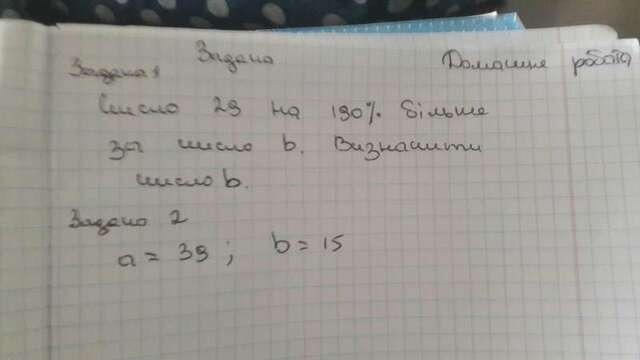 Задано
Домашня робота
Задача 1
Число 29 на 190% більше
за число b. Визначити
число b.
Задано 2
a = 39; b = 15